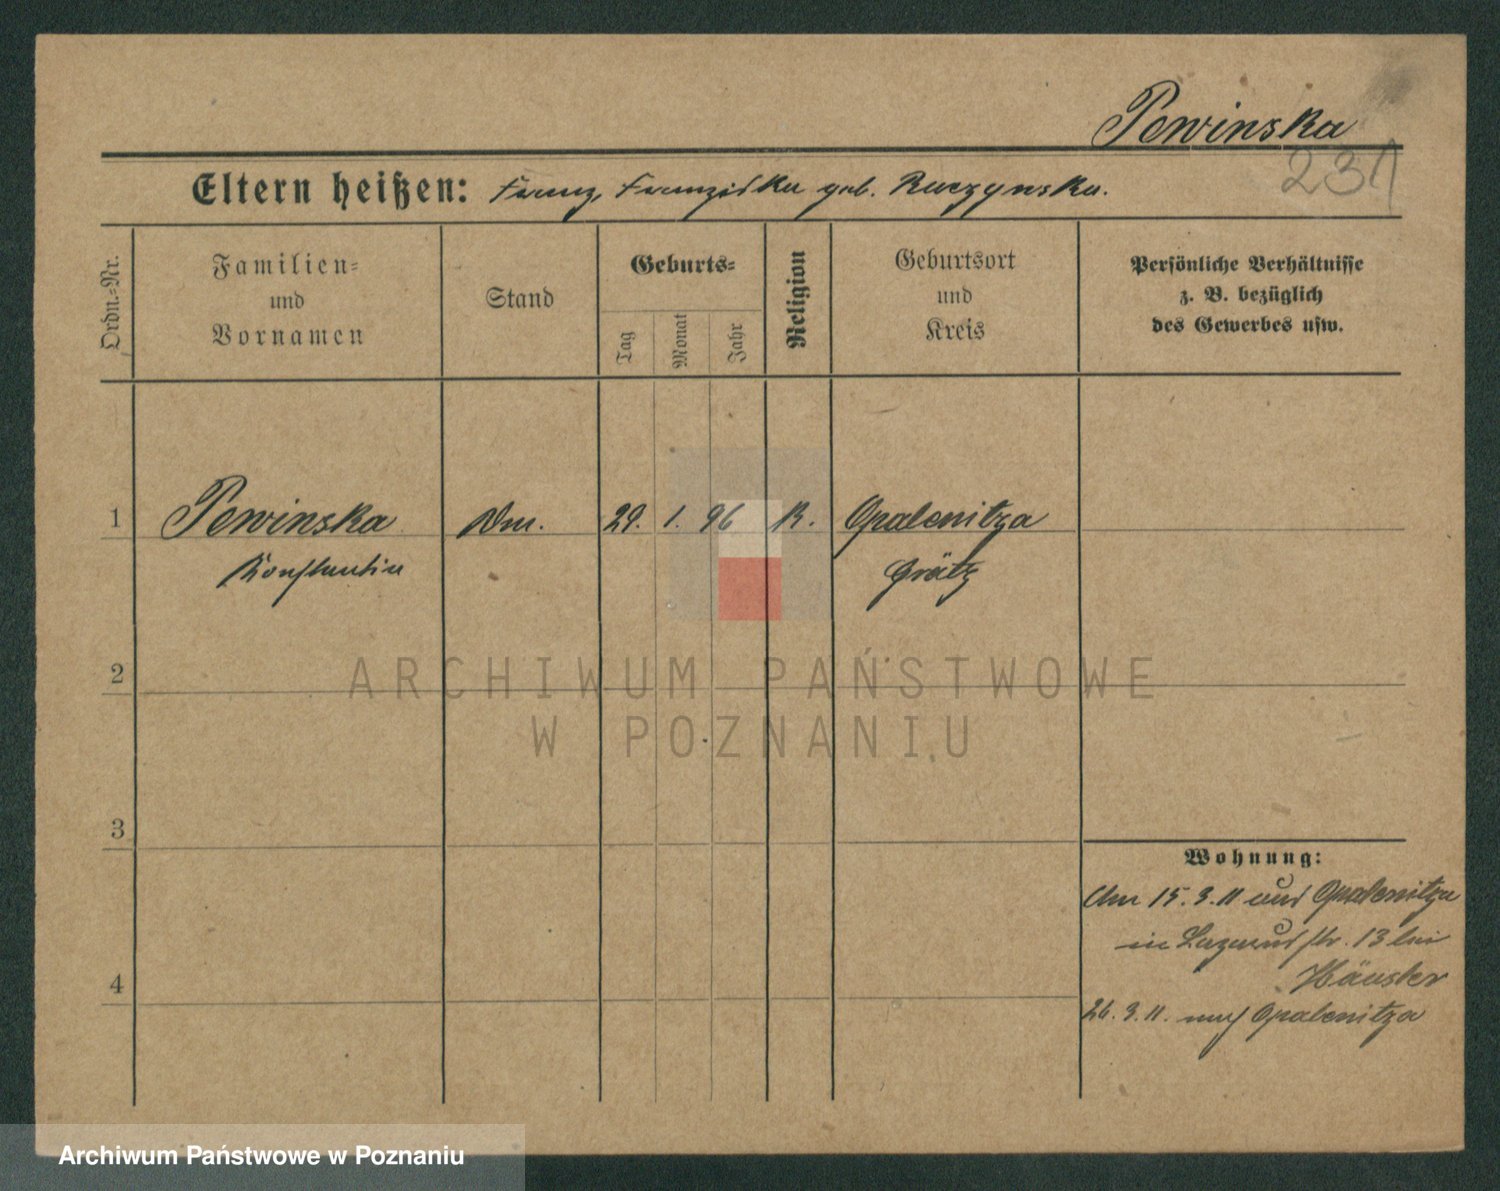 Pewinska
231
Eltern heißen: Franz, Franziska geb. Raczynska.
Ordn.-Nr.
Familien-
und
Vornamen
Stand
Geburts-
Tag
Monat
Jahr
Religion
Geburtsort
und
Kreis
Persönliche Verhältnisse
z. B. bezüglich
des Gewerbes usw.
1 Pewinska Dm. 29. 1. 96 K. Opalenitza
Konstantia Grätz
2
3
4
Wohnung:
Am 15.3.11 aus Opalenitza
in Lazarusstr. 13 bei
Häusler
26.3.11. nach Opalenitza
ARCHIWUM PAŃSTWOWE
W POZNANIU
Archiwum Państwowe w Poznaniu